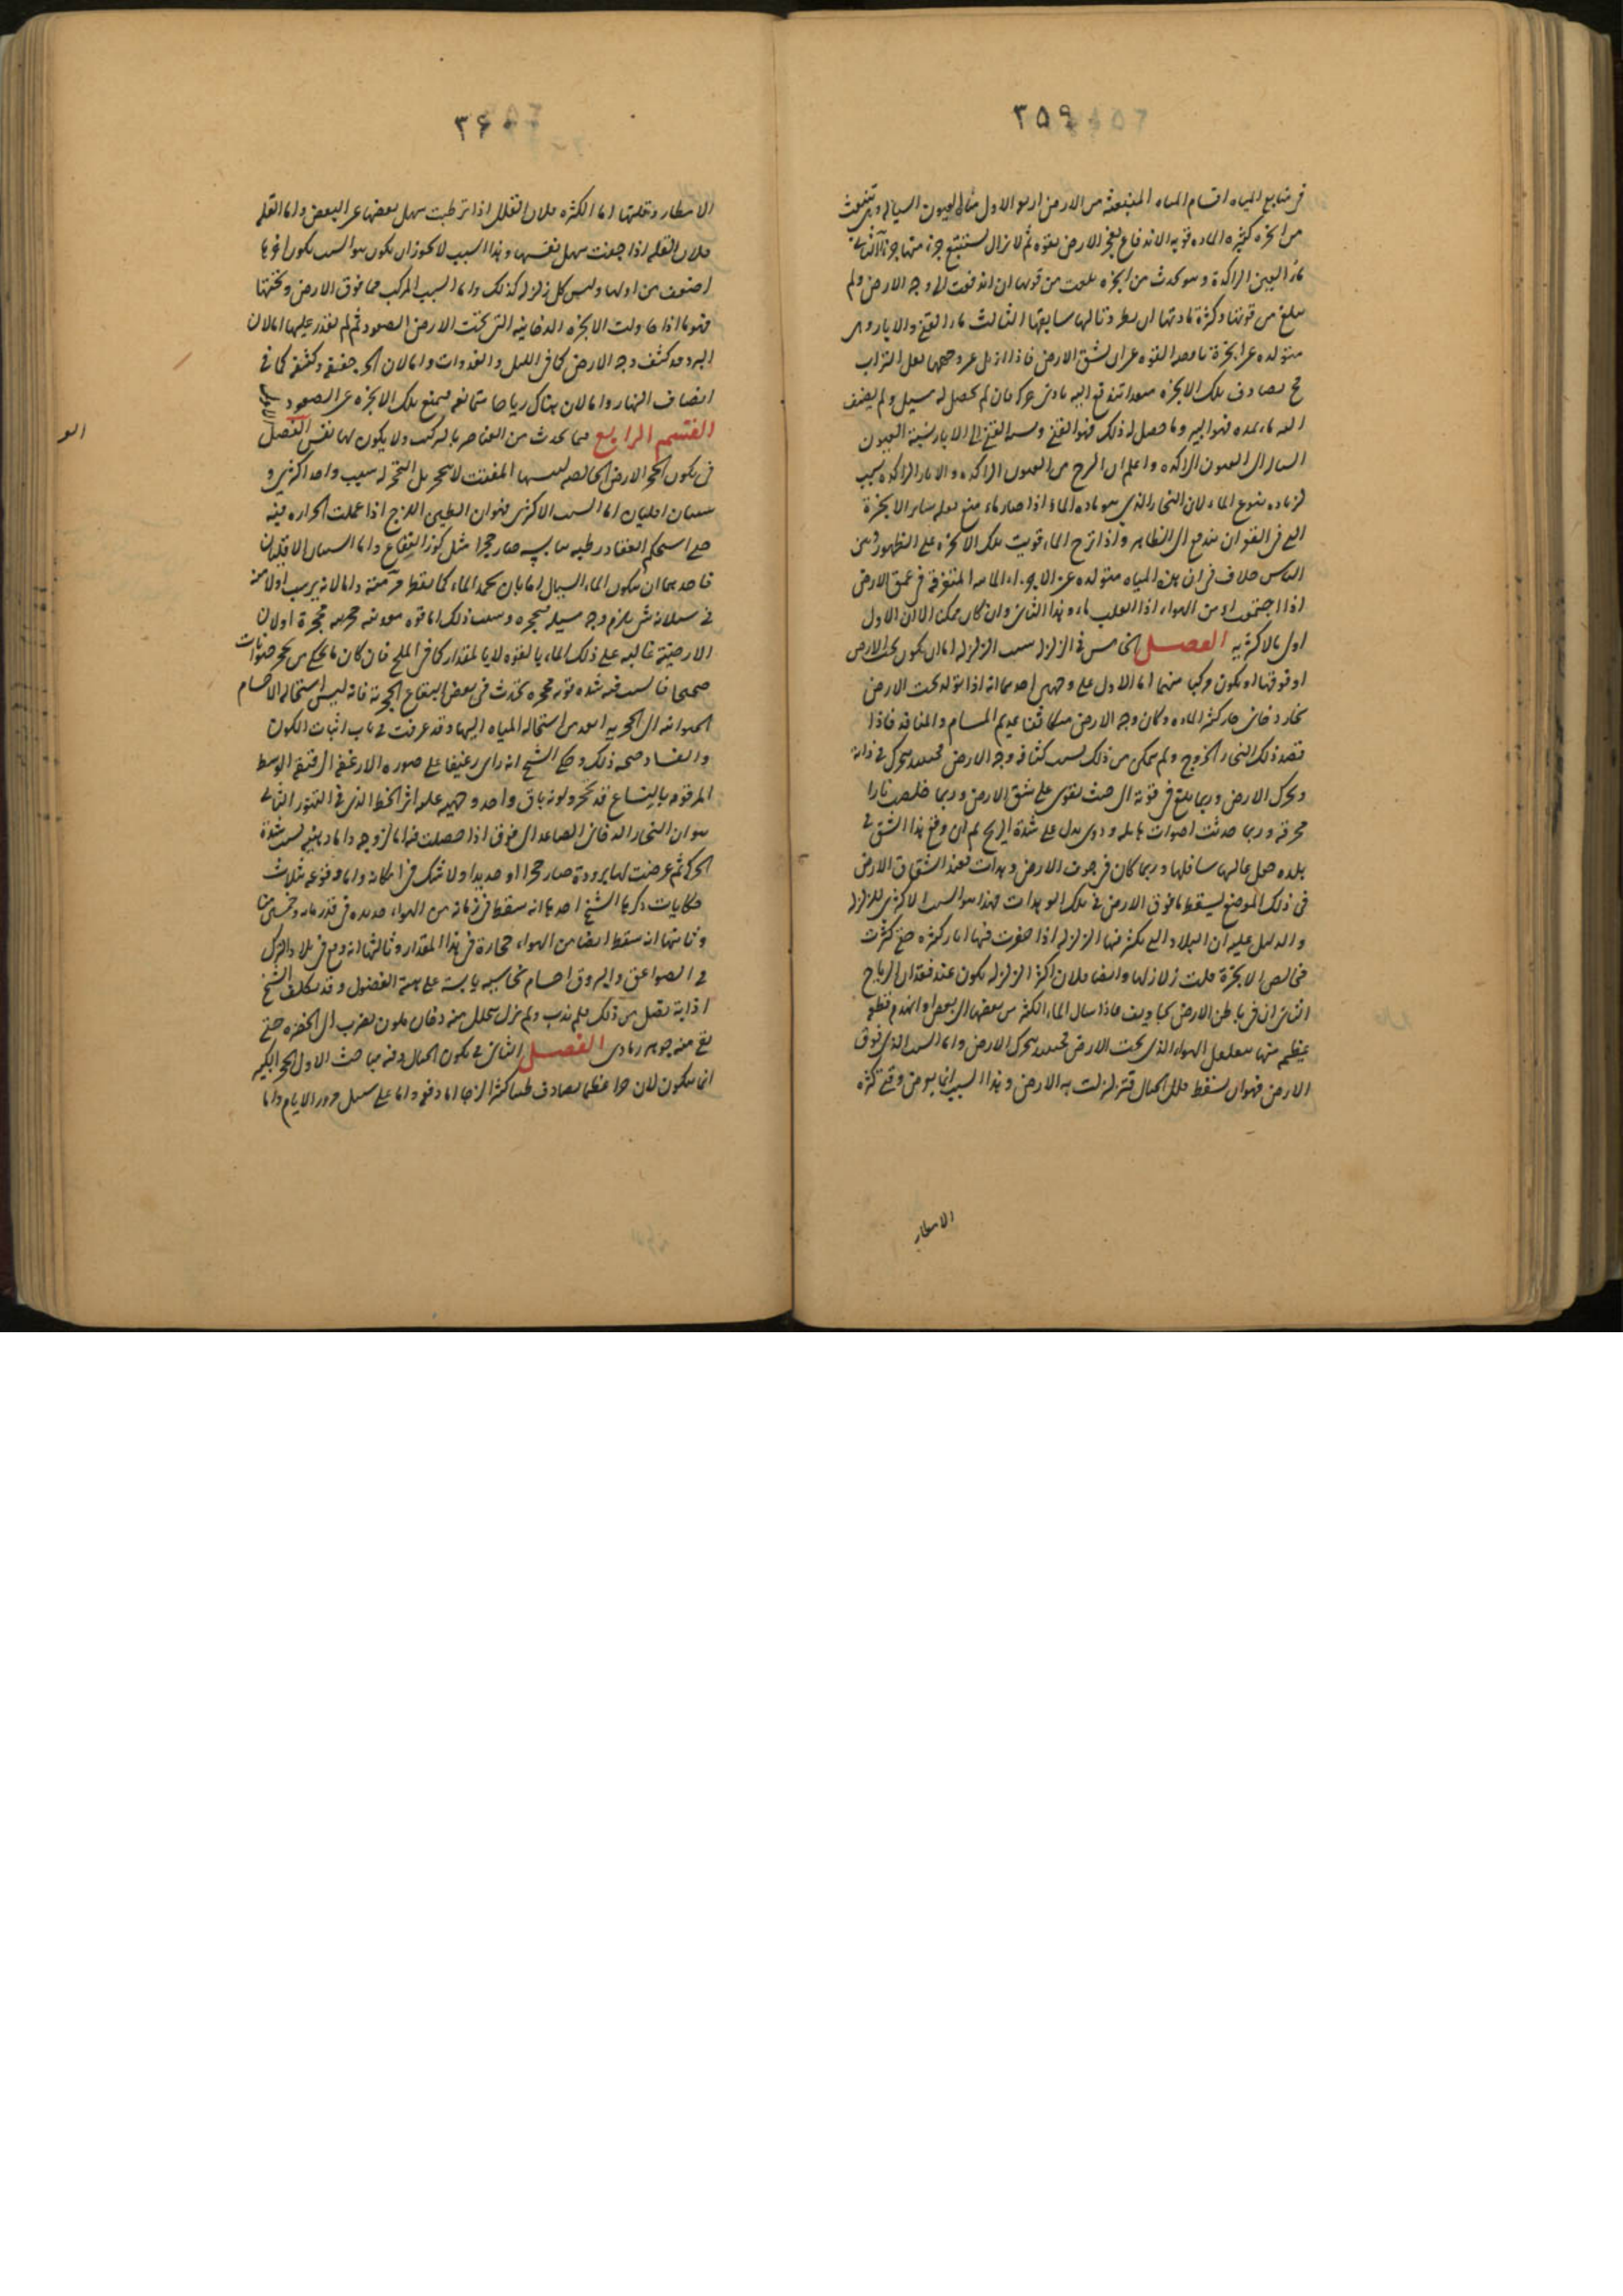 ٣٥٩
في منابع المياه اقسام المياه المنبعثة من الارض اربعة الاول مياه العيون السيالة وهي تنبعث
من ابخرة كثيرة المادة قوية الاندفاع تفجر الارض بقوة ثم لا تزال تستتبع جزء منها جزءا الثانية
ماء العيون الراكدة وهو يحدث من ابخرة بلغت من قوتها ان اندفعت الى وجه الارض ولم
يبلغ من قوتها وكثرة مادتها ان يطرد تاليها سابقها الثالث ماء القنى والابار وهي
متولدة عن ابخرة ناقصة القوة عن ان تشق الارض فاذا ازيل عن وجهها ثقل التراب
ح تصادف تلك الابخرة منفذا تندفع اليه بادنى حركة فان لم يحصل له مسيل ولم يضف
اليه ماء يمده فهو البير وما حصل له ذلك فهو القنى ونسبة القنى الى الابار نسبة العيون
السيالة الى العيون الراكدة واعلم ان النزح من العيون الراكدة والابار الراكدة سبب
لزيادة نبوع الماء لان البخار الذي هو مادة الماء اذا صار ماء منع ثقله ساير الابخرة
التي في القوة ان تندفع الى الظاهر واذا نزح الماء قويت تلك الابخرة على الظهور ومن
الناس خلاف في ان هذه المياه متولدة عن الاجزاء المائية المتفرقة في عمق الارض
اذا اجتمعت او من الهواء اذا انقلب ماء وهذا الثاني وان كان ممكنا الا ان الاول
اولى بالاكثرية الفصل الخامس في الزلزلة سبب الزلزلة اما ان يكون تحت الارض
او فوقها او يكون مركبا منهما اما الاول على وجهين احدهما انه اذا تولد تحت الارض
بخار دخاني حار كثير المادة وكان وجه الارض متكاثفا عديم المسام والمنافذ فاذا
قصد ذلك البخار الخروج ولم يتمكن من ذلك بسبب كثافة وجه الارض فحينئذ يتحرك في ذاته
ويحرك الارض وربما بلغ في قوته الى حيث يقوى على شق الارض وربما خلصت نارا
محرقة وربما حدثت اصوات هايلة ودوى يدل على شدة الريح ثم ان وقع هذا الشق في
بلدة جعل عاليها سافلها وربما كان في جوف الارض وهدات فعند انشقاق الارض
في ذلك الموضع ليسقط ما فوق الارض في تلك الوهدات فهذا هو السبب الاكثري للزلزلة
والدليل عليه ان البلاد التي يكثر فيها الزلزلة اذا حفرت فيها ابار كثيرة حتى كثرت
مخالص الابخرة قلت زلازلها وايضا فلان اكثر الزلزلة يكون عند فقدان الرياح
الثاني ان في باطن الارض تجاويف فاذا سال الماء الكثير من بعضها الى بعض او انهدم قطعة
عظيم منها يتقلقل الهواء الذي تحت الارض فحينئذ يتحرك الارض واما السبب الذي فوق
الارض فهو ان يسقط قلل الجبال فتزلزلت به الارض وهذا السبب انما يعرض وقت كثرة
الامطار
٣۶٠
الامطار وقلتها اما الكثرة فلان القلل اذا ترطبت سهل بعضها عن البعض واما القلة
فلان القلة اذا جفت سهل تفتتها وهذا السبب لا يجوز ان يكون هو السبب لكون اخرها
اضعف من اولها وليس كل زلزلة كذلك واما السبب المركب مما فوق الارض وتحتها
فهو ما اذا حاولت الابخرة الدخانية التي تحت الارض الصعود ثم لم تقدر عليها اما لان
البرد قد كثف وجه الارض كما في الليل والغدوات واما لان الحر جففه وكثفه كما في
انصاف النهار واما لان هناك رياحا متمانعة فيمنع تلك الابخرة عن الصعود
القسم الرابع فيما يحدث من العناصر بالتركيب ولا يكون لها نفس الفصل الاول
في تكون الحجر الارض الخالصة ليبسها المتفتت لا يتحجر بل التحجر له سبب واحد اكثري و
سببان اقليان اما السبب الاكثري فهو ان الطين اللزج اذا عملت الحرارة فيه
حتى استحكم انعقاد رطبه بيابسه صار حجرا مثل كوز الفقاع واما السببان الاقليان
فاحدهما ان يتكون الماء السيال اما بان يجمد الماء كما يقطر قرمته واما لانه يرسب اولا منه
في سيلانه شئ يلزم وجه مسيله فيتحجر وسبب ذلك اما قوة معدنية محجرة او لان
الارضية غالبة على ذلك الماء بالقوة لا بالمقدار كما في الملح فان كان ما يحكى من تحجر حيوانات
صحيحا فالسبب فيه شدة قوة محجرة تحدث في بعض البقاع الحجرية فانه ليس استحالة الاجسام
الحيوانية الى الحجرية ابعد من استحالة المياه اليها وقد عرفت في باب اثبات الكون
والفساد صحة ذلك وحكى الشيخ انه راى رغيفا على صورة الارغفة الرقيقة الوسط
المرقومة بالسباع قد تحجر ولونه باق واحد وجهيه عليه اثر الخط الذي في التنور الثاني
هو ان البخار الدخاني الصاعد الى فوق اذا حصلت فيه اما لزوجة واما دهنية بسبب شدة
الحركة ثم عرضت لها برودة صار حجرا او حديدا ولا شك في امكانه واما وقوعه فثلاث
حكايات ذكرها الشيخ احدها انه سقط في زمانه من الهواء حديده في قدر ماية وخمسين منا
وثانيتها انه سقط ايضا من الهواء حجارة في هذا المقدار وثالثتها انه وقع في بلاد الترك
في الصواعق والبروق اجسام نحاسية يابسة على هيئة النصول وقد تكلف الشيخ
اذابة نصل من ذلك فلم يذب ولم يزل يتحلل منه دخان ملون يضرب الى الخضرة حتى
بقي منه جوهر رمادي الفصل الثاني في تكون الجبال وفيه مباحث الاول الحجر الكبير
انما يتكون لان حرا عظيما يصادف طينا كثيرا لزجا اما دفعة واما على سبيل مرور الايام واما